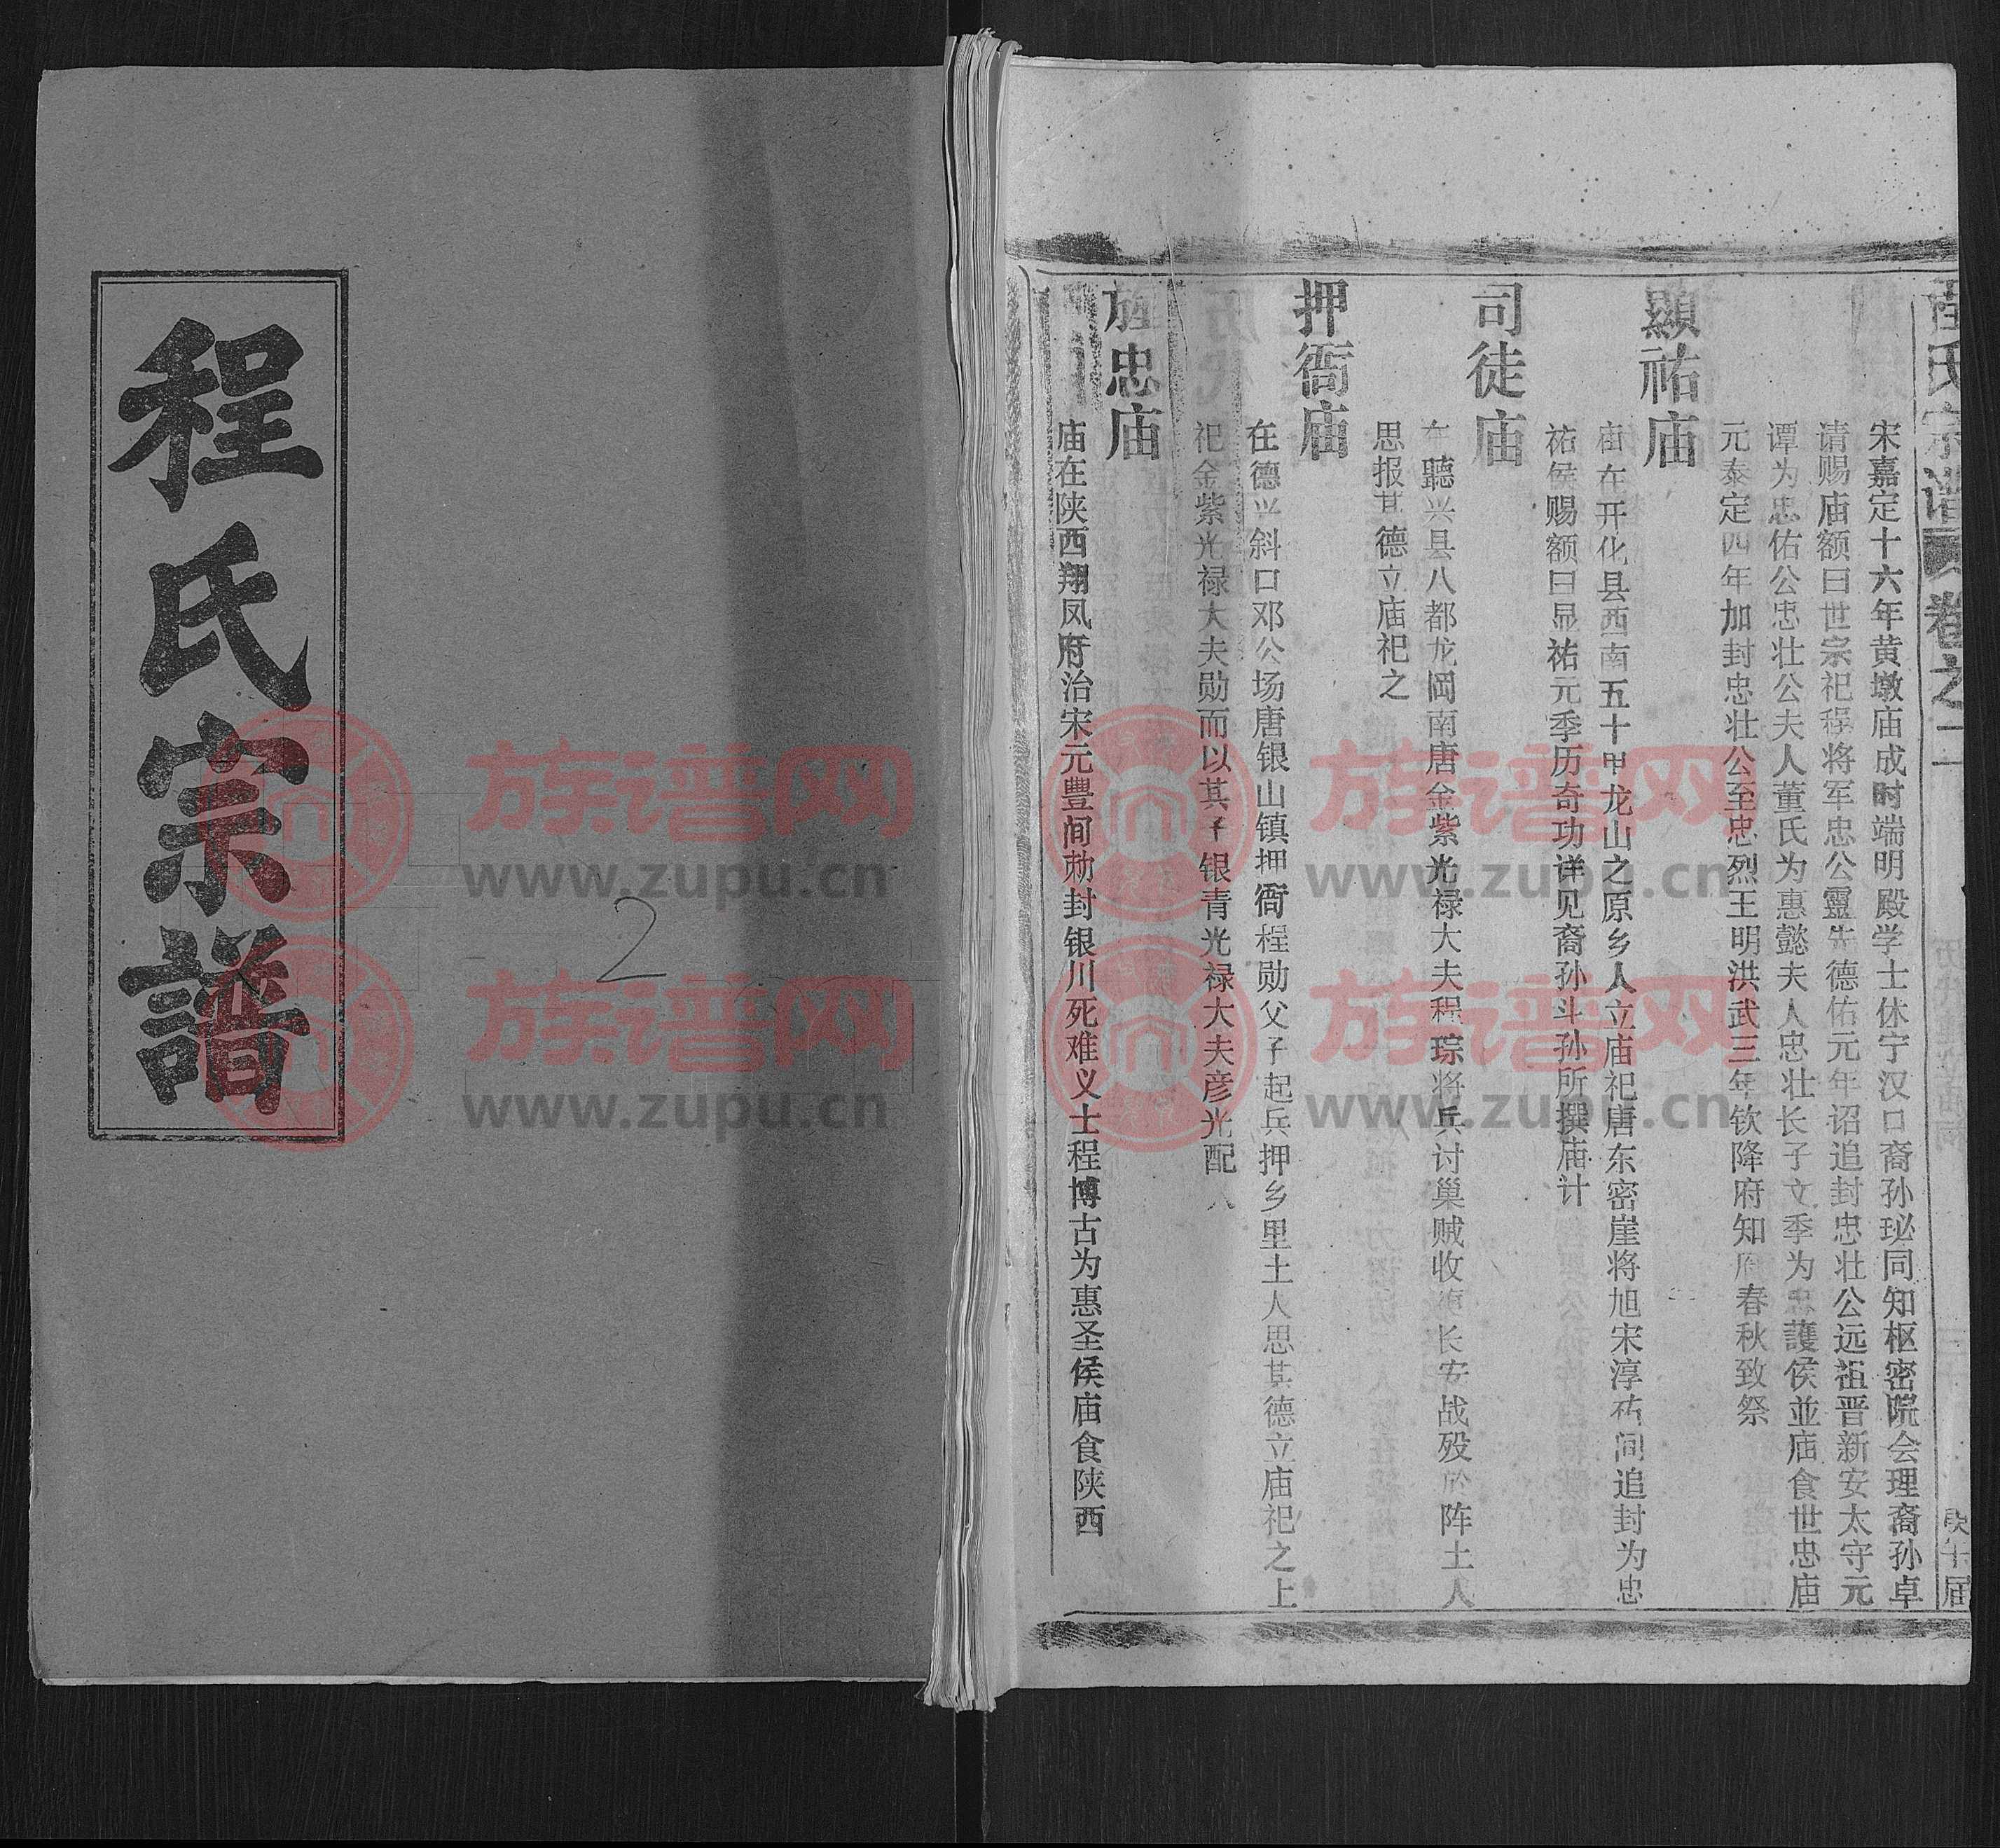 程氏宗譜
2
程氏宗谱 卷之二
宋嘉定十六年黄墩庙成时端明殿学士休宁汉口裔孙珌同知枢密院会理裔孙卓
请赐庙额曰世宗祀程将军忠公靈先德佑元年诏追封忠壮公远祖晋新安太守元
谭为忠佑公忠壮公夫人董氏为惠懿夫人忠壮长子文季为忠護侯並庙食世忠庙
元泰定四年加封忠壮公至忠烈王明洪武三年钦降府知府春秋致祭
顯祐庙
庙在开化县西南五十里龙山之原乡人立庙祀唐东密崖将旭宋淳祐间追封为忠
祐侯赐额曰显祐元季历奇功详见裔孙斗孙所撰庙计
司徒庙
在聽兴县八都龙岡南唐金紫光禄大夫程琮将兵讨巢贼收 长安战殁於阵土人
思报其德立庙祀之
押衙庙
在德兴斜口邓公场唐银山镇押衙程勋父子起兵押乡里土人思其德立庙祀之上
祀金紫光禄大夫勋而以其子银青光禄大夫彦光配 八
旌忠庙
庙在陕西翔凤府治宋元豐间勅封银川死难义士程博古为惠圣侯庙食陕西
族谱网
www.zupu.cn
族谱网
www.zupu.cn
族谱网
www.zupu.cn
族谱网
www.zupu.cn